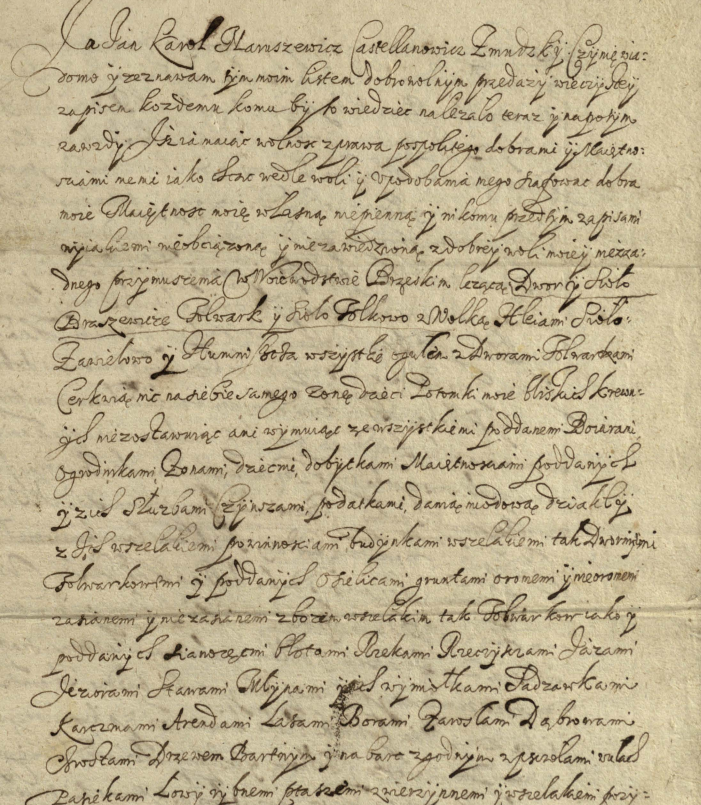 Ja Jan Karol Naruszewicz Castellanowicz Zmudzky Czynię wia-
domo y zeznawam tym moim listem dobrowolnym przedazy wieczystey
zapisem kozdemu komu by to wiedziec nalezalo teraz y napotym
zawzdy. Iz ia maiąc wolnosc z prawa pospolitego dobrami y Maiętno-
sciami memi iako chcąc wedle woli y upodobania mego szafowac dobra
moie Maiętnosc moię własną niepienną y nikomu przedtym zapisami
nijakiemi nieobciązoną y niezawiedzioną z dobrey woli moiey niezza-
dnego przymuszenia w Woiewodstwie Brzeskim lezącą Dwor y Sioło
Braszewicze Folwark y Sioło Folkowo z Wolką Sioło
Zawielowo y wszystkę ogułem z Dworami Folwarkami
Cerkwią nic na siebie samego zonę dzieci Potomki moie bliskich krewn-
ych niezostawuiąc ani wymuiąc ze wszystkiemi poddanemi Boiarami
Ogrodnikami, Zonami, dziecmi, dobytkami Maiętnosciami poddanych
y z ich słuzbami Czynszami, podatkami, danią miodową dziakły
z Ich wszelakiemi powinnosciami budynkami wszelakiemi tak Dwornymi
Folwarkowemi y poddanych Osielicami gruntami oromemi y nieoromemi
zasianemi y niezasianemi zbozem wszelakim tak Folwarkow iako y
poddanych sianozęćmi błotami Rzekami Rzeczyskami Jazami
Jeziorami Stawami Młynami y ich wymiołkami Sadzawkami
Karczmami Arendami Lasami Borami Zaroslami Dąbrowami
Chrostami Drzewem Bartnym y na barc zgodnym z pszczołami w ulach
Pasiekami Łowy rybnemi ptaszemi zwierzynnemi y wszelakiemi pozy-